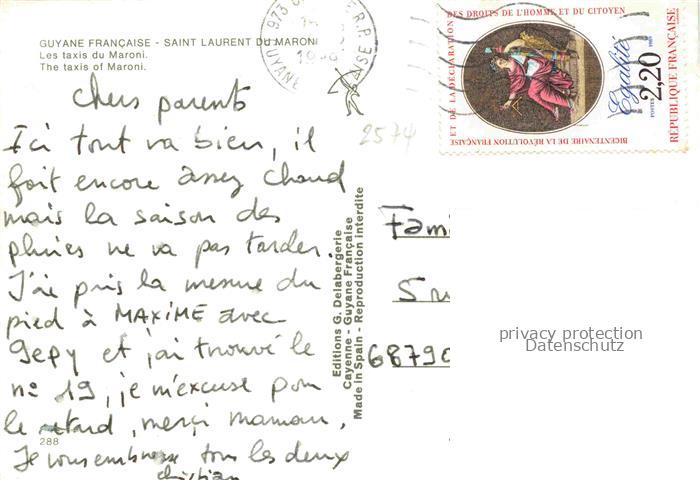 GUYANE FRANÇAISE - SAINT LAURENT DU MARONI
Les taxis du Maroni.
The taxis of Maroni.
Chers parents
Ici tout va bien, il
fait encore assez chaud
mais la saison des
pluies ne va pas tarder.
J'ai pris la mesure du
pied à MAXIME avec
Gepy et j'ai trouvé le
no 19, je m'excuse pour
le retard, merçi maman.
Je vous embrasse tous les deux
Christian
288
Editions G. Delabergerie
Cayenne - Guyane Française
Made in Spain - Reproduction interdite
2574
973
GUYANE
BICENTENAIRE DE LA RÉVOLUTION FRANÇAISE
ET DE LA DÉCLARATION
DES DROITS DE L'HOMME ET DU CITOYEN
Egalité
POSTES 2,20 1989
RÉPUBLIQUE FRANÇAISE
Fam
6879
privacy protection
Datenschutz